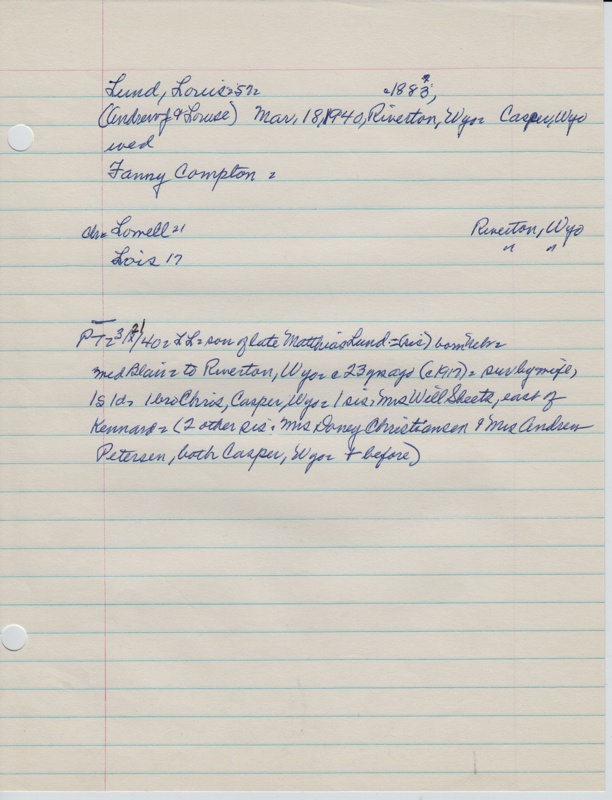 Lund, Louis=57= c1883?,
(Andrew J & Louise) Mar, 18, 1940, Riverton, Wyo= Casper, Wyo
wed
Fanny Compton =
ch= Lowell 21 Riverton, Wyo
Lois 17 " "
PT= 3/21/40= LL= son of late Matthias Lund=(sic) born Nebr=
med Blair= to Riverton, Wyo= c 23 yrs ago (c1917)= surv by wife,
1s 1d= 1 bro Chris, Casper, Wyo= 1 sis, Mrs Will Sheets, east of
Kennard= (2 other sis, Mrs Doney Christiansen & Mrs Andrew
Petersen, both Casper, Wyo= + before)